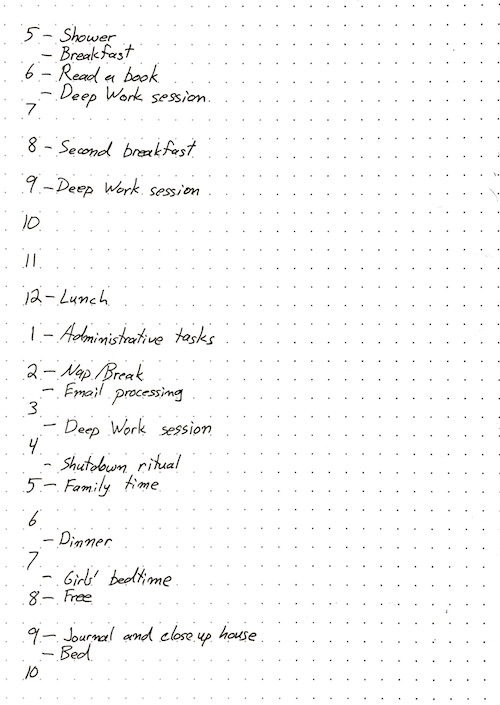 5 - Shower
- Breakfast
6 - Read a book
- Deep Work session
7
8 - Second breakfast
9 - Deep Work session
10
11
12 - Lunch
1 - Administrative tasks
2 - Nap/Break
- Email processing
3
- Deep Work session
4
- Shutdown ritual
5 - Family time
6
- Dinner
7
- Girls' bedtime
8 - Free
9 - Journal and close up house
- Bed
10